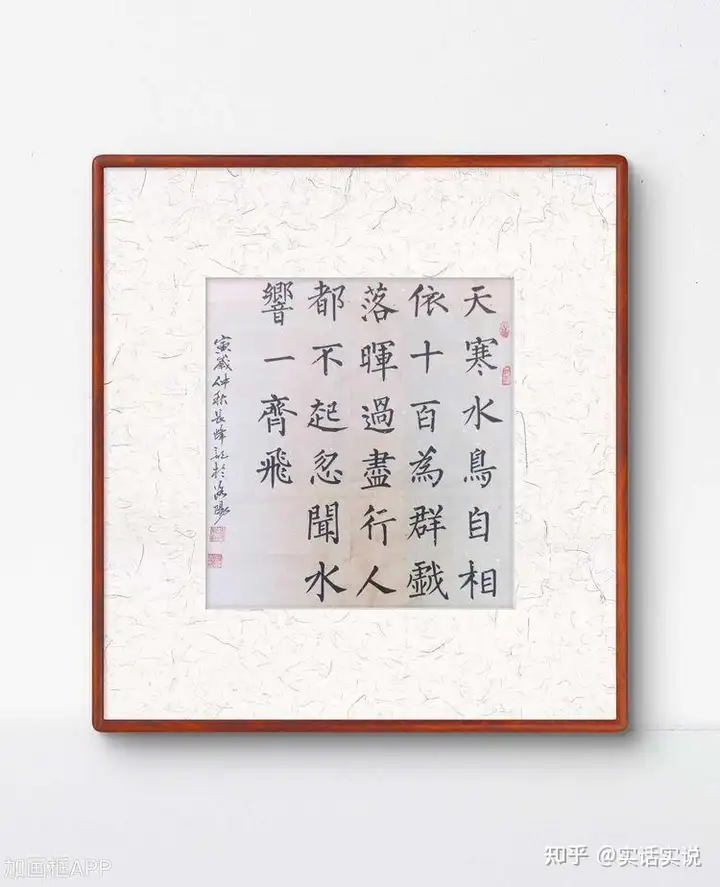 天寒水鳥自相
依十百為群戲
落暉過盡行人
都不起忽聞水
響一齊飛
寅歲仲秋長峰記於洛陽
知乎 @实话实说
加画框APP